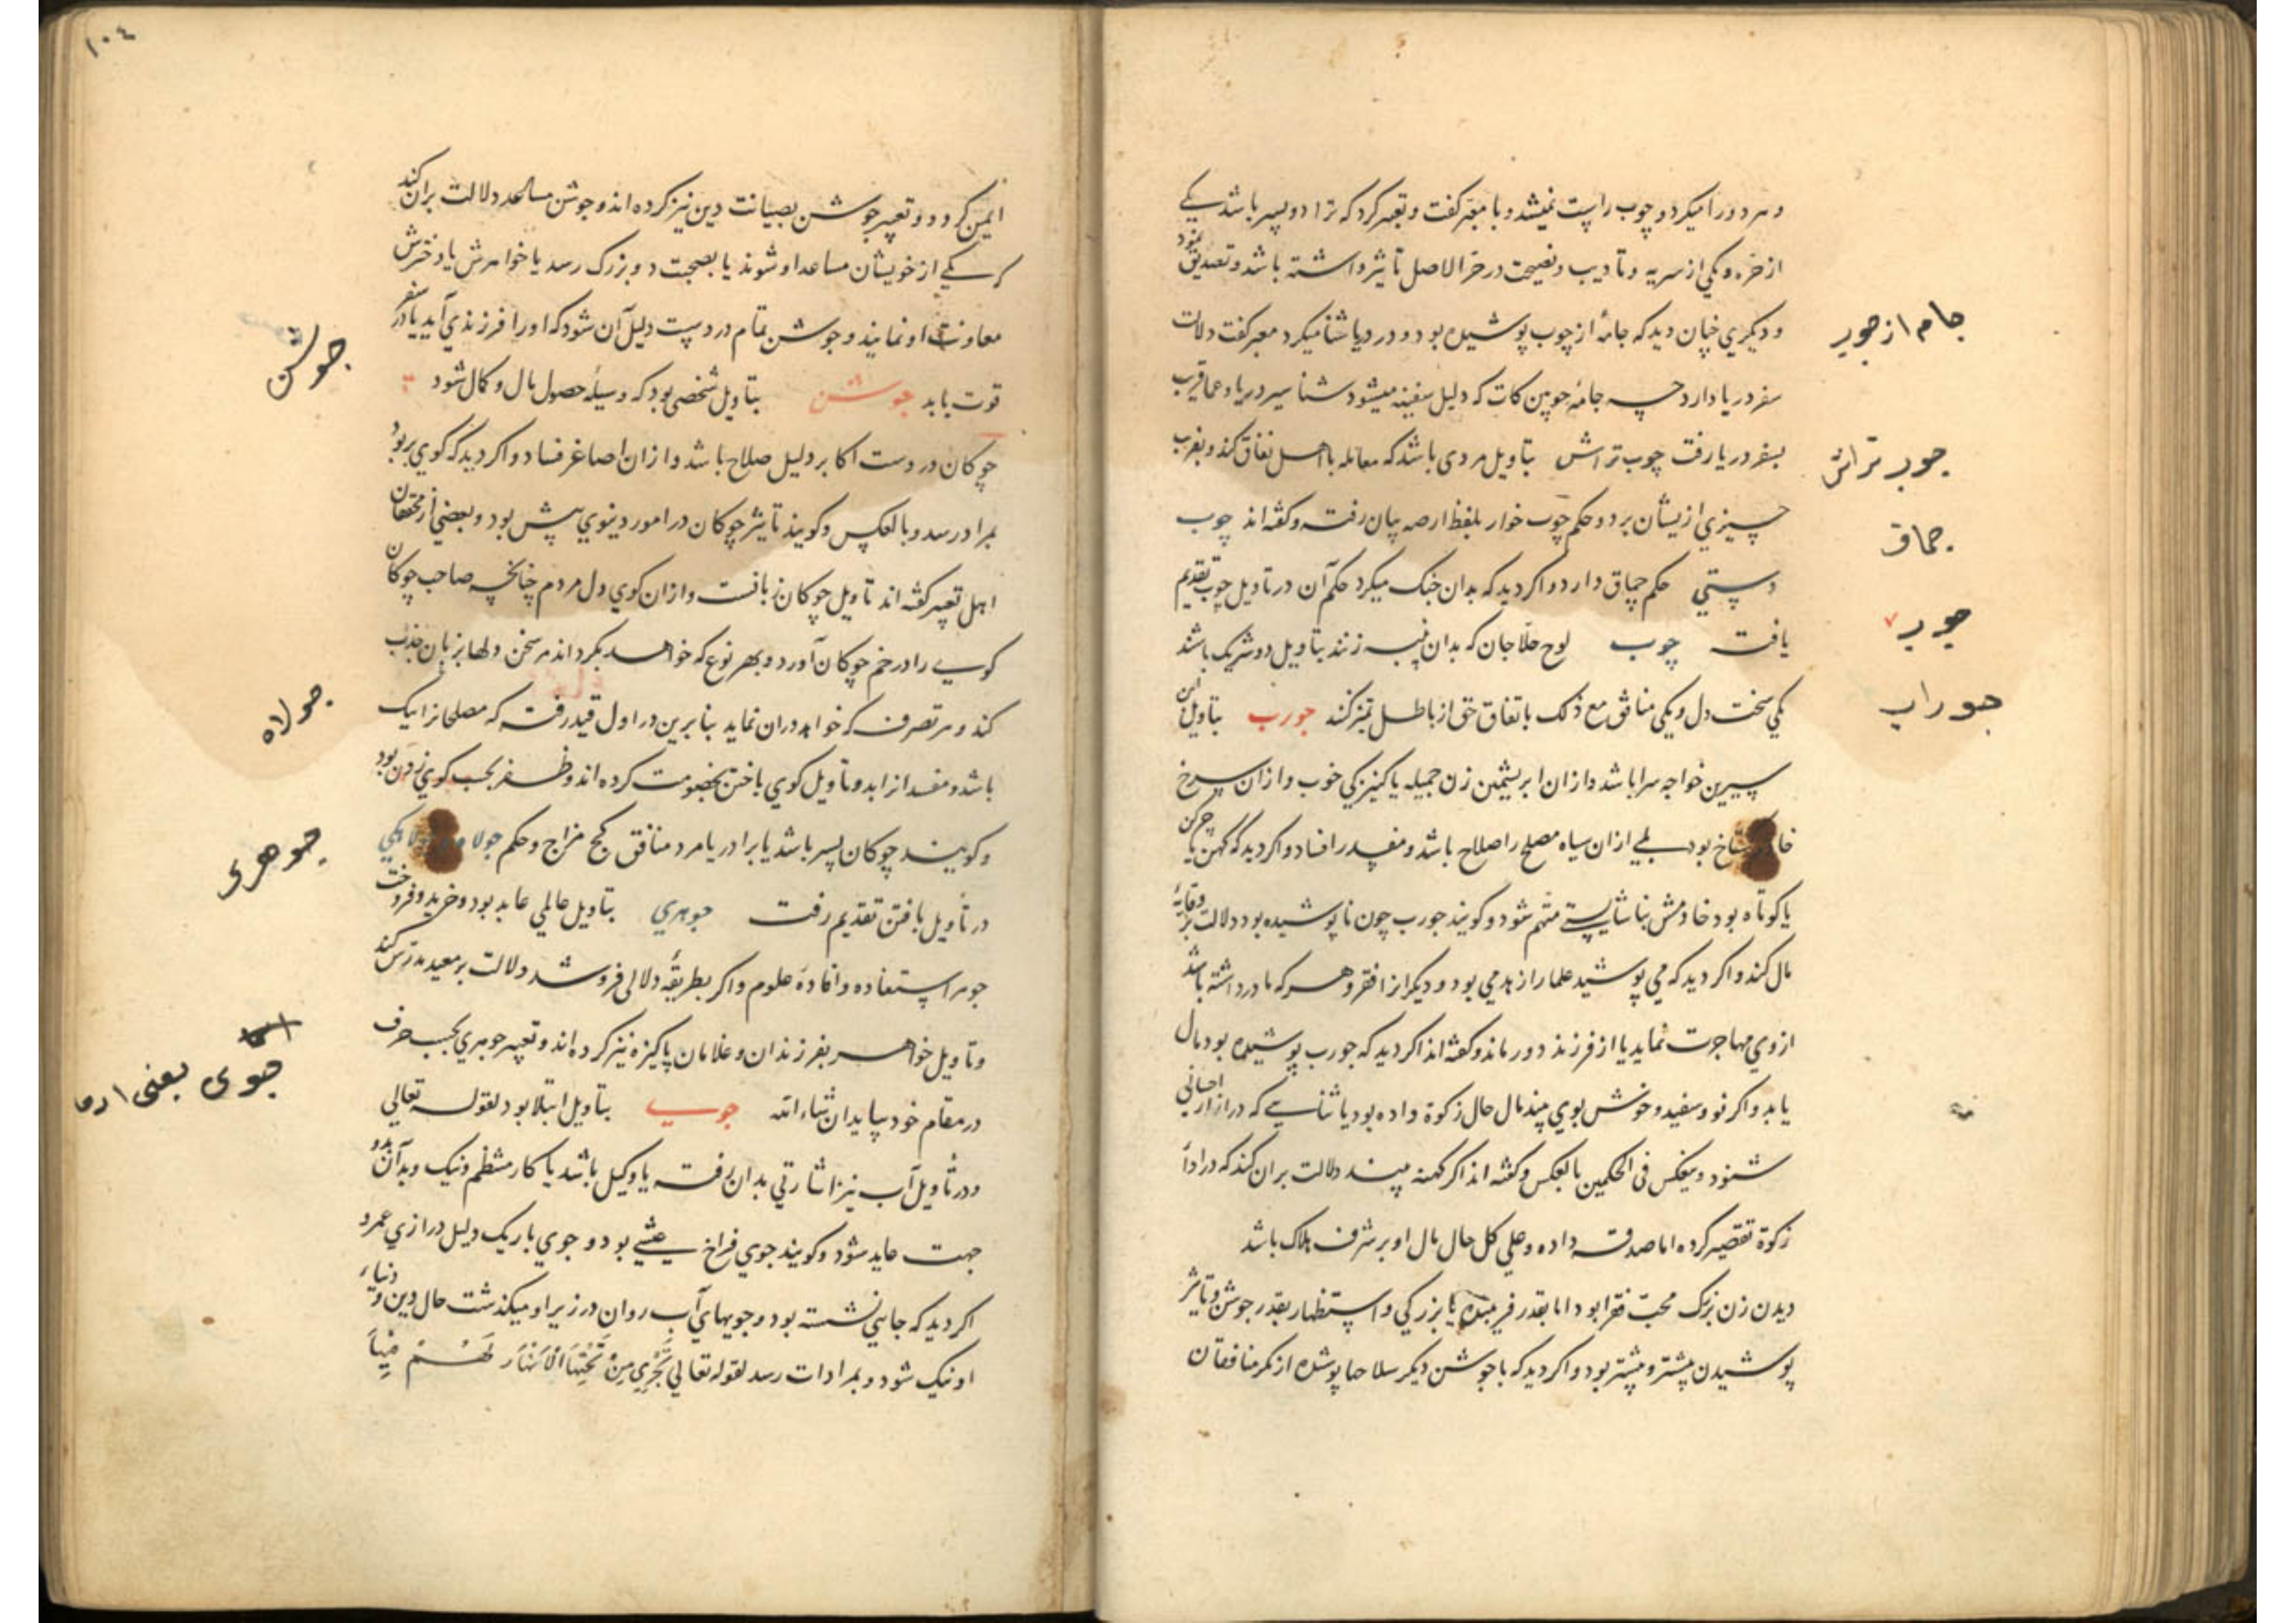 و هر دو را میکرد و چوب راست نمیشد و با معبر کفت و تعبیر کرد که ترا دو پسر باشد یکی
از حره و یکی از سریه و تادیب و نصیحت در حر الاصل تاثیر داشته باشد و تصدیق نمود
و دیکری خنان دید که جامهٔ از چوب پوشیده بود و در دریا شنا میکرد معبر کفت دلالت
سفر دریا دارد چه جامهٔ چوبین کات که دلیل سفینه میشود شنا سیر دریا و عماقریب
بسفر دریا رفت چوب تراش بتاویل مردی باشد که معامله با اهل نفاق کند و بفریب
چیزی ازیشان برد و حکم چوب خوار بلفظ ارضه بیان رفت و کفته‌اند چوب
دستی حکم چماق دارد و اکر دید که بدان جنک میکرد حکم آن در تاویل چوب تقدیم
یافت چوب لوح حلاجان که بدان پنبه زنند بتاویل دو شریک باشند
یکی سخت دل و یکی منافق مع ذلک باتفاق حق از باطل تمیز کنند جورب بتاویل این
سیرین خواجه سرا باشد و ازان ابریشمین زن جمیله یا کنیزکی خوب و ازان سرخ
بود بلی ازان سیاه مصلح را صلاح باشد و مفسد را فساد و اکر دید که کهن یا چرکن
یا کوتاه بود خادمش بناشایستی متهم شود و کویند جورب چون ناپوشیده بود دلالت بر وقایهٔ
مال کند و اکر دید که می پوشید علما را زهدمی بود و دیکر از افقر و هر که مادر داشته باشد
ازوی مهاجرت نماید یا از فرزند دور ماند و کفته‌اند اکر دید که جورب پوشیده بود مال
یابد و اکر نو و سفید و خوش بوی بیند مال حال زکوة داده بود یا ثنایی که درازار احسانی
شنود و ینعکس فی الحکمین بالعکس و کفته‌اند اکر کهنه بیند دلالت بران کند که در اداء
زکوة تقصیر کرده اما صدقه داده و علی کل حال مال او بر شرف هلاک باشد
دیدن زن بزرک محب فقرا بود اما بقدر بزرکی و استظهار بقدر جوشن و تاثیر
پوشیدن بیشتر و بیشتر بود و اکر دید که با جوشن دیکر سلاحها پوشیده از مکر منافقان
جام از جوب
جوب تراش
جماق
جوب
جوراب
١٠٤
ایمن کردد و تعبیر جوشن بصیانت دین نیز کرده‌اند و جوشن مساعد دلالت بران کند
که یکی از خویشان مساعد او شوند یا بصحبت دو بزرک رسد یا خواهرش یا دخترش
معاونت او نمایند و جوشن تمام در دست دلیل آن شود که او را فرزندی آید یا در سفر
قوت یابد جوشن بتاویل شخصی بود که وسیلهٔ حصول مال و کمال شود
چوکان در دست اکابر دلیل صلاح باشد و ازان اصاغر فساد و اکر دید که کوی بربود
بمراد رسد و بالعکس و کویند تاثیر چوکان در امور دینوی بیش بود و بعضی از محققان
اهل تعبیر کفته‌اند تاویل چوکان زبانست و ازان کوی دل مردم چنانچه صاحب چوکان
کوی را در خم چوکان آورد و بهر نوع که خواهد بکرداند هر سخن دلها بزبان جذب
کند و هر تصرف که خواهد دران نماید بنابرین در اول قید رفت که مصلحانرا نیک
باشد و مفسدانرا بد و تاویل کوی باختن بخصومت کرده‌اند و ظفر بحسب کوی زدن بود
و کویند چوکان پسر باشد یا برادر یا مرد منافق کج مزاج و حکم جولاه
در تأویل بافتن تقدیم رفت جوهری بتاویل عالمی عابد بود و خرید و فروخت
جوهر استفاده و افادهٔ علوم و اکر بطریقهٔ دلالی فروشد دلالت بر معید مدرس کند
و تاویل جواهر بفرزندان و غلامان پاکیزه نیز کرده‌اند و تعبیر جوهری بحسب حرف
در مقام خود بیاید ان شاء الله جوی بتاویل ابتلا بود لقوله تعالی
و در تأویل آب نیز اشارتی بدان رفته یا وکیل باشد یا کار منتظم و نیک و بد آن بدو
جهت عاید شود و کویند جوی فراخ عیشی بود و جوی باریک دلیل درازی عمر و
اکر دید که جایی نشسته بود و جویهای آب روان در زیر او میکذشت حال دین و دنیاء
او نیک شود و بمرادات رسد لقوله تعالی تَجْرِي مِنْ تَحْتِهَا الْأَنْهَارُ لَهُمْ فِيهَا
جوشن
جولاه
جوهری
جوی یعنی ارما